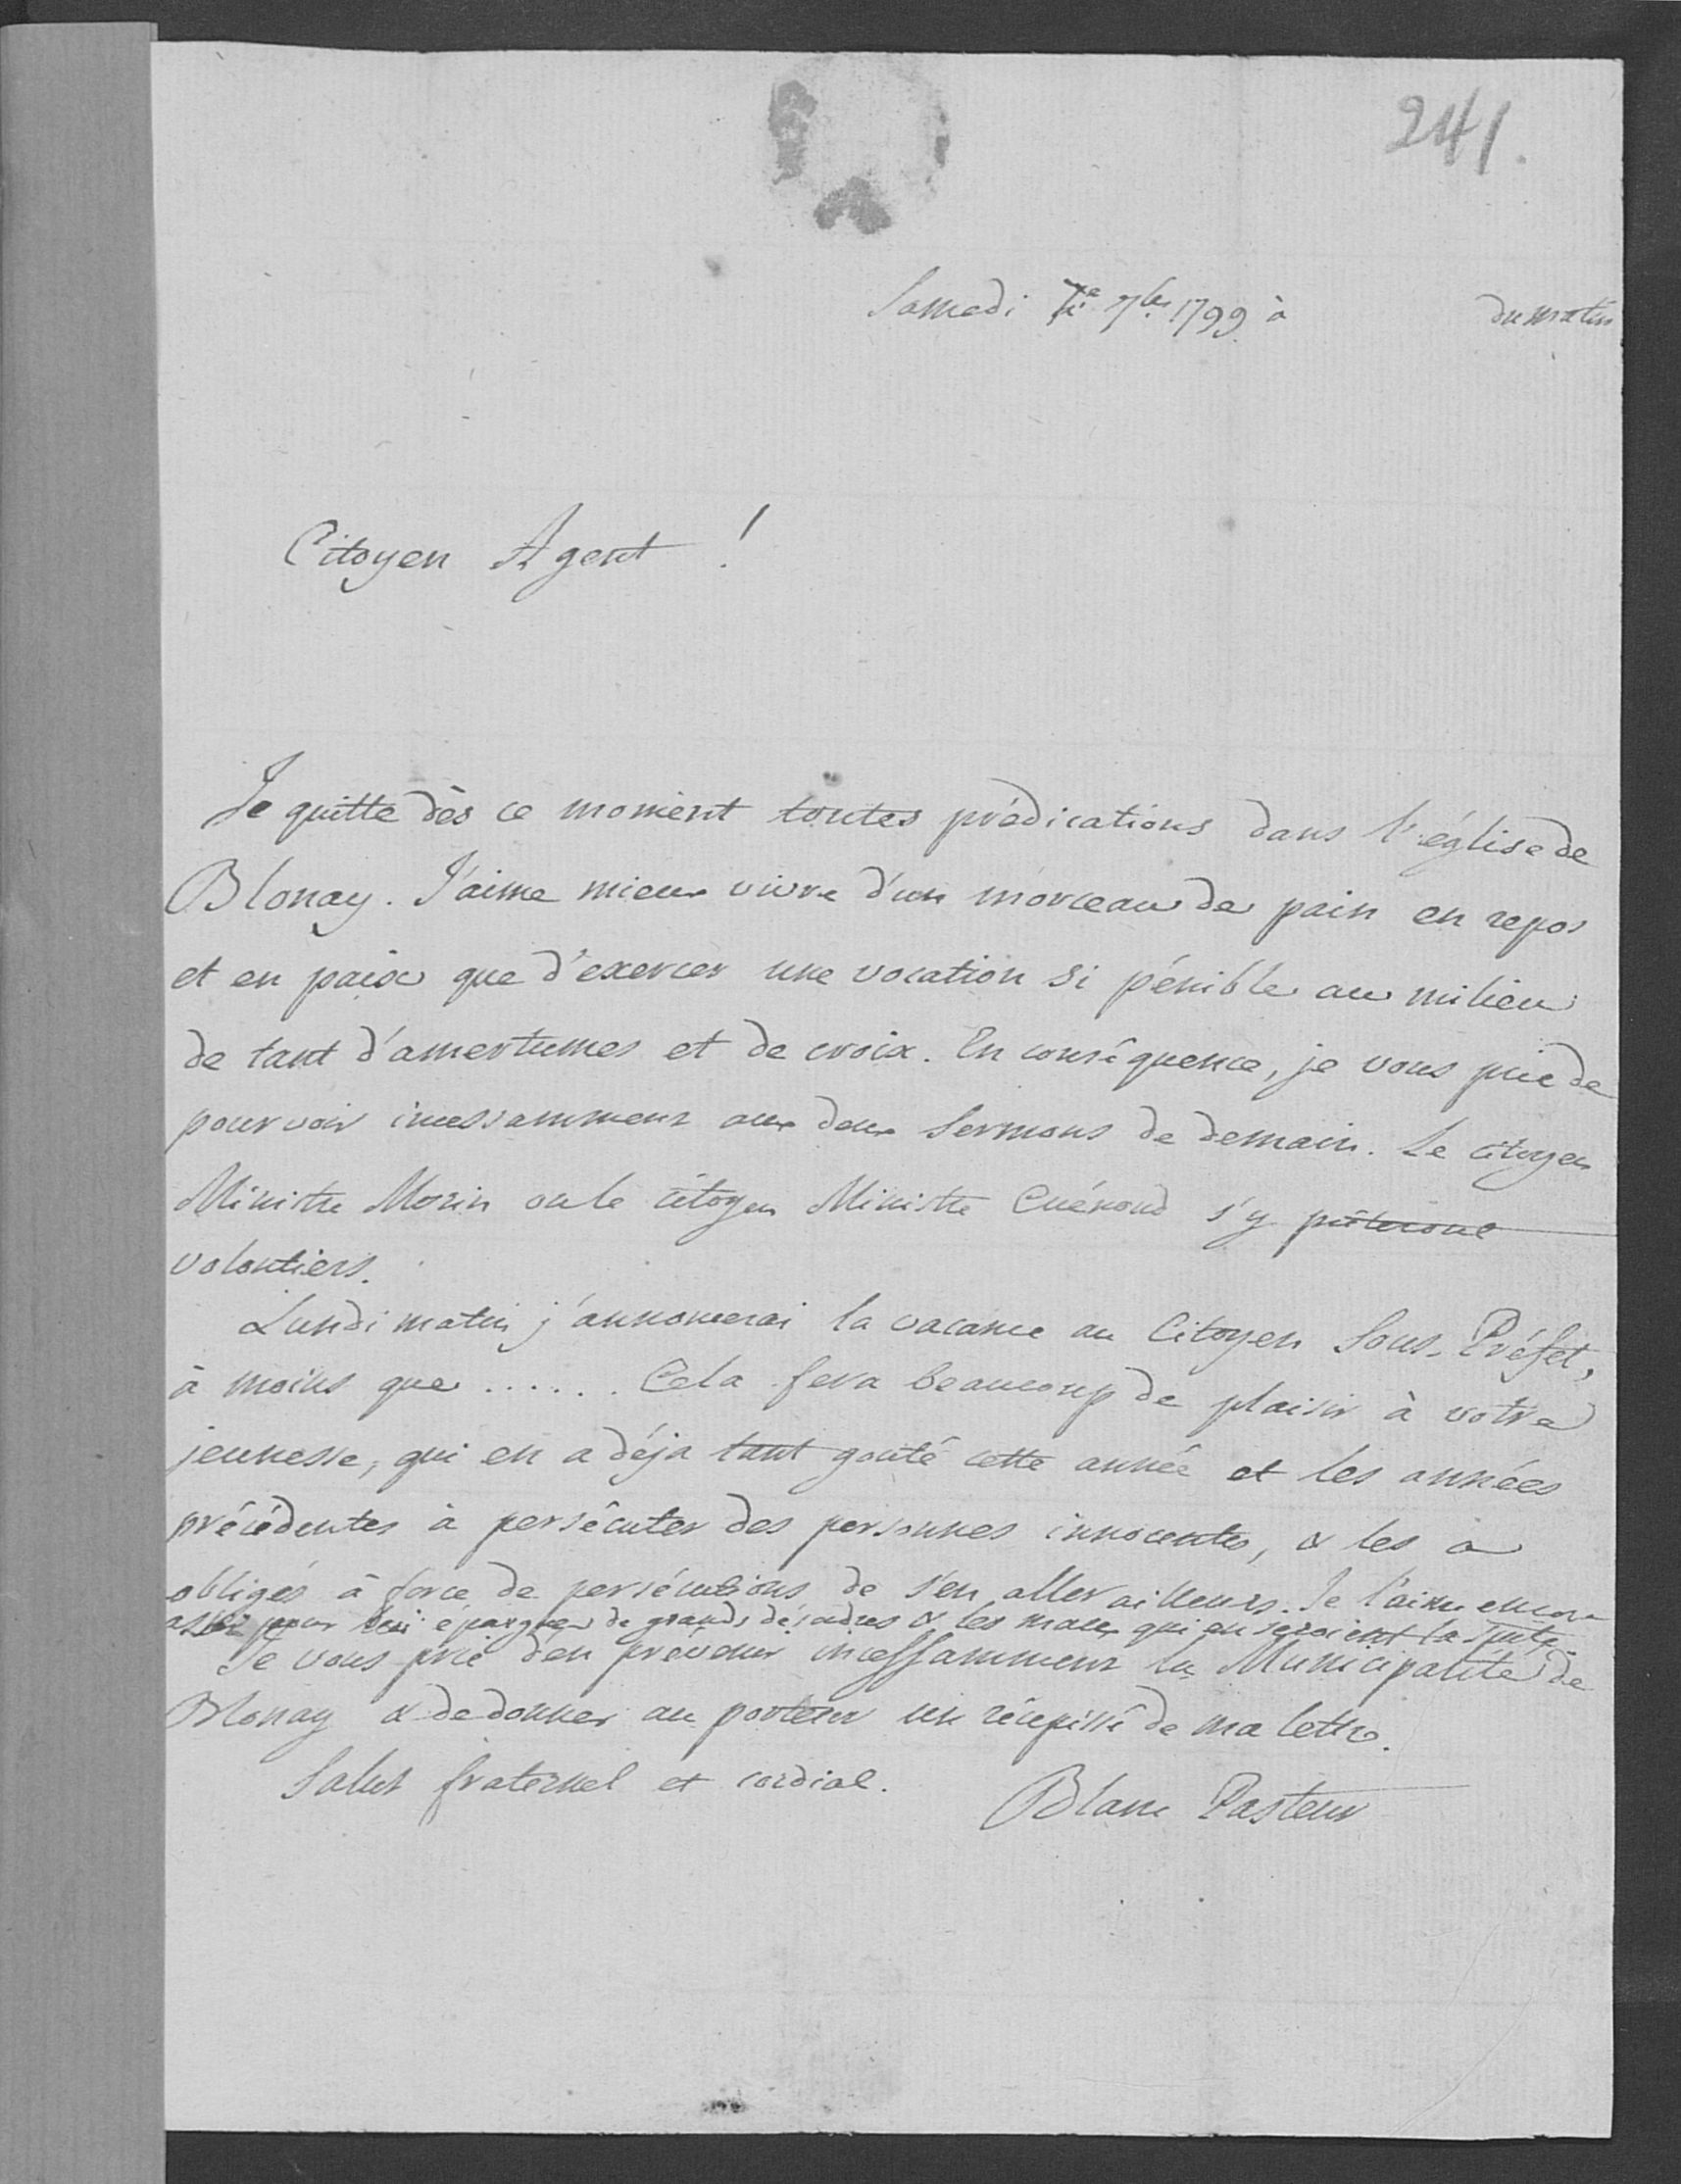 241.
Samedi 7e 7bre 1799 à du matin
Citoyen Agent !
Je quitte dès ce moment toutes prédications dans l'église de
Blonay. J'aime mieux vivre d'un morceau de pain en repos
et en paix que d'exercer une vocation si pénible au milieu
de tant d'amertumes et de croix. En conséquence, je vous prie de
pourvoir incessamment aux deux sermons de demain. Le citoyen
Ministre Morin ou le citoyen Ministre Cuénoud s'y prêteront
volontiers.
Lundi matin j'annoncerai la vacance au Citoyen Sous-Préfet,
à moins que ...... Cela fera beaucoup de plaisir à votre
jeunesse, qui en a déja tant gouté cette année et les années
précédentes à persécuter des personnes innocentes, & les a
obligés à force de persécutions de s'en aller ailleurs. Je l'aime encore
assez pour lui épargner de grands désordres & les maux qui en seroient la suite.
Je vous prie d'en prévenir incessamment la Municipalité de
Blonay & de donner au porteur un récépissé de ma lettre.
Salut fraternel et cordial. Blanc Pasteur